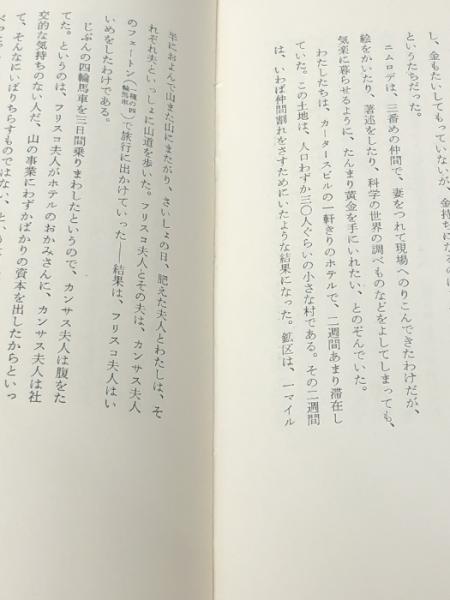 し、金もたいしてもっていないが、金持ちになるのは
というたちだった。
ニムロデは、三番めの仲間で、妻をつれて現場へのりこんできたわけだが、
絵をかいたり、著述をしたり、科学の世界の調べものなどをよしてしまっても、
気楽に暮らせるように、たんまり黄金を手にいれたい、とのぞんでいた。
わたしたちは、カータースビルの一軒きりのホテルで、二週間あまり滞在し
ていた。この土地は、人口わずか三〇人ぐらいの小さな村である。その二週間
は、いわば仲間割れをさすためにいたような結果になった。鉱区は、一マイル
半におよんで山また山にまたがり、さいしょの日、肥えた夫人とわたしは、そ
れぞれ夫といっしょに山道を歩いた。フリスコ夫人とその夫は、カンサス夫人
のフェートン(一種の四輪馬車)で旅行に出かけていった――結果は、フリスコ夫人はい
いめをしたわけである。
じぶんの四輪馬車を三日間乗りまわしたというので、カンサス夫人は腹をた
てた。というのは、フリスコ夫人がホテルのおかみさんに、カンサス夫人は社
交的な気持ちのない人だ、山の事業にわずかばかりの資本を出したからといっ
て、そんなにいばりちらすものではない、と